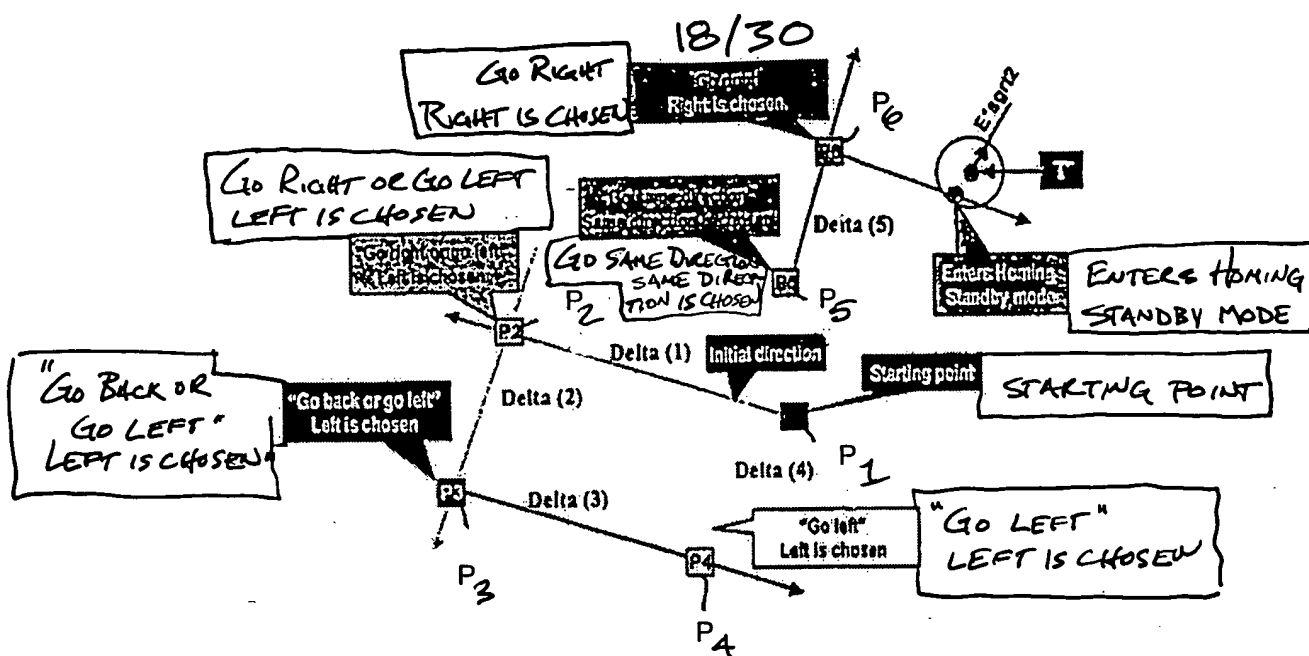 18/30
GO RIGHT
RIGHT IS CHOSEN
Right is chosen.
P6
E*sqrt2
T
GO RIGHT OR GO LEFT
LEFT IS CHOSEN
"Go right or go left"
Left is chosen
Delta (5)
GO SAME DIRECTION
SAME DIREC-
TION IS CHOSEN
P5
P2
Enters Homing
Standby mode
ENTERS HOMING
STANDBY MODE
P2
Delta (1)
Initial direction
Starting point
STARTING POINT
"GO BACK OR
GO LEFT"
LEFT IS CHOSEN"
"Go back or go left"
Left is chosen
Delta (2)
P1
Delta (4)
P3
Delta (3)
"Go left"
Left is chosen
"GO LEFT"
LEFT IS CHOSEN
P4
P3
P4